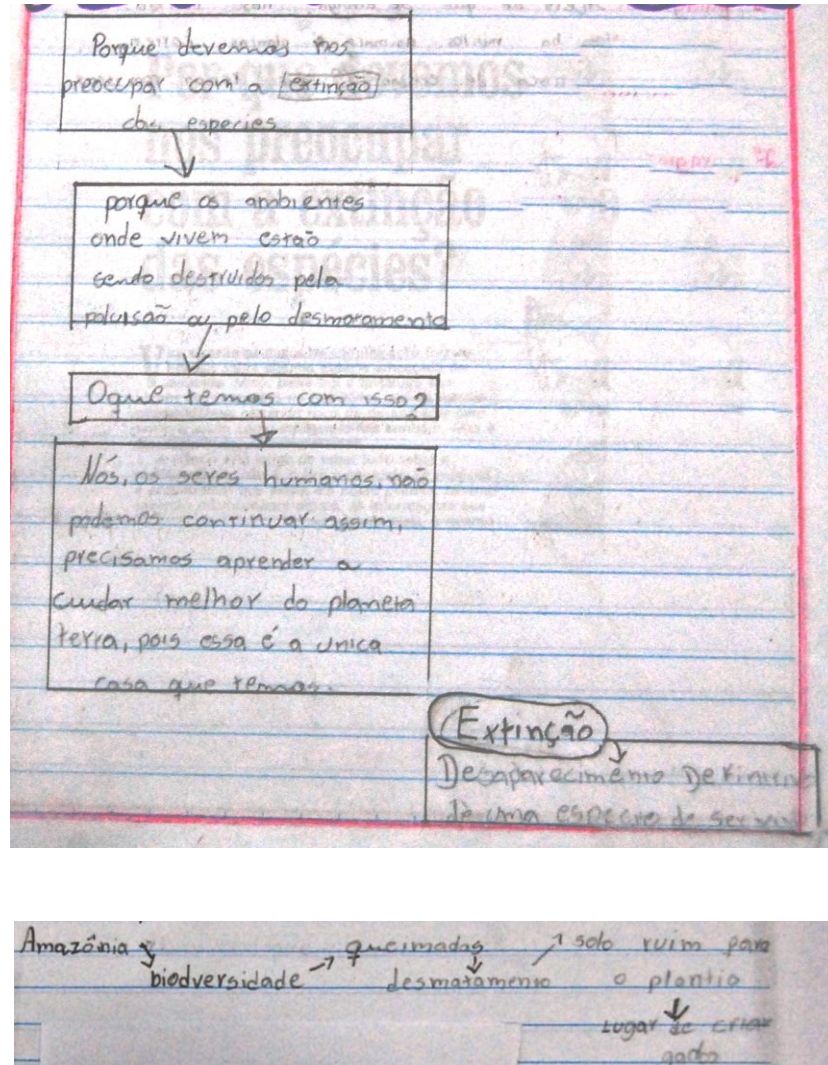 Porque devemos nos
preocupar com a extinção
das especies
porque os ambientes
onde vivem estão
sendo destruidos pela
poluisão ou pelo desmatamento
Oque temos com isso?
Nós, os seres humanos, não
podemos continuar assim,
precisamos aprender a
cuidar melhor do planeta
terra, pois essa é a unica
casa que temos.
Extinção
Desaparecimento
de uma especie de ser
Amazônia
biodversidade
queimadas
desmatamento
solo ruim para
o plantio
Lugar de criar
gado